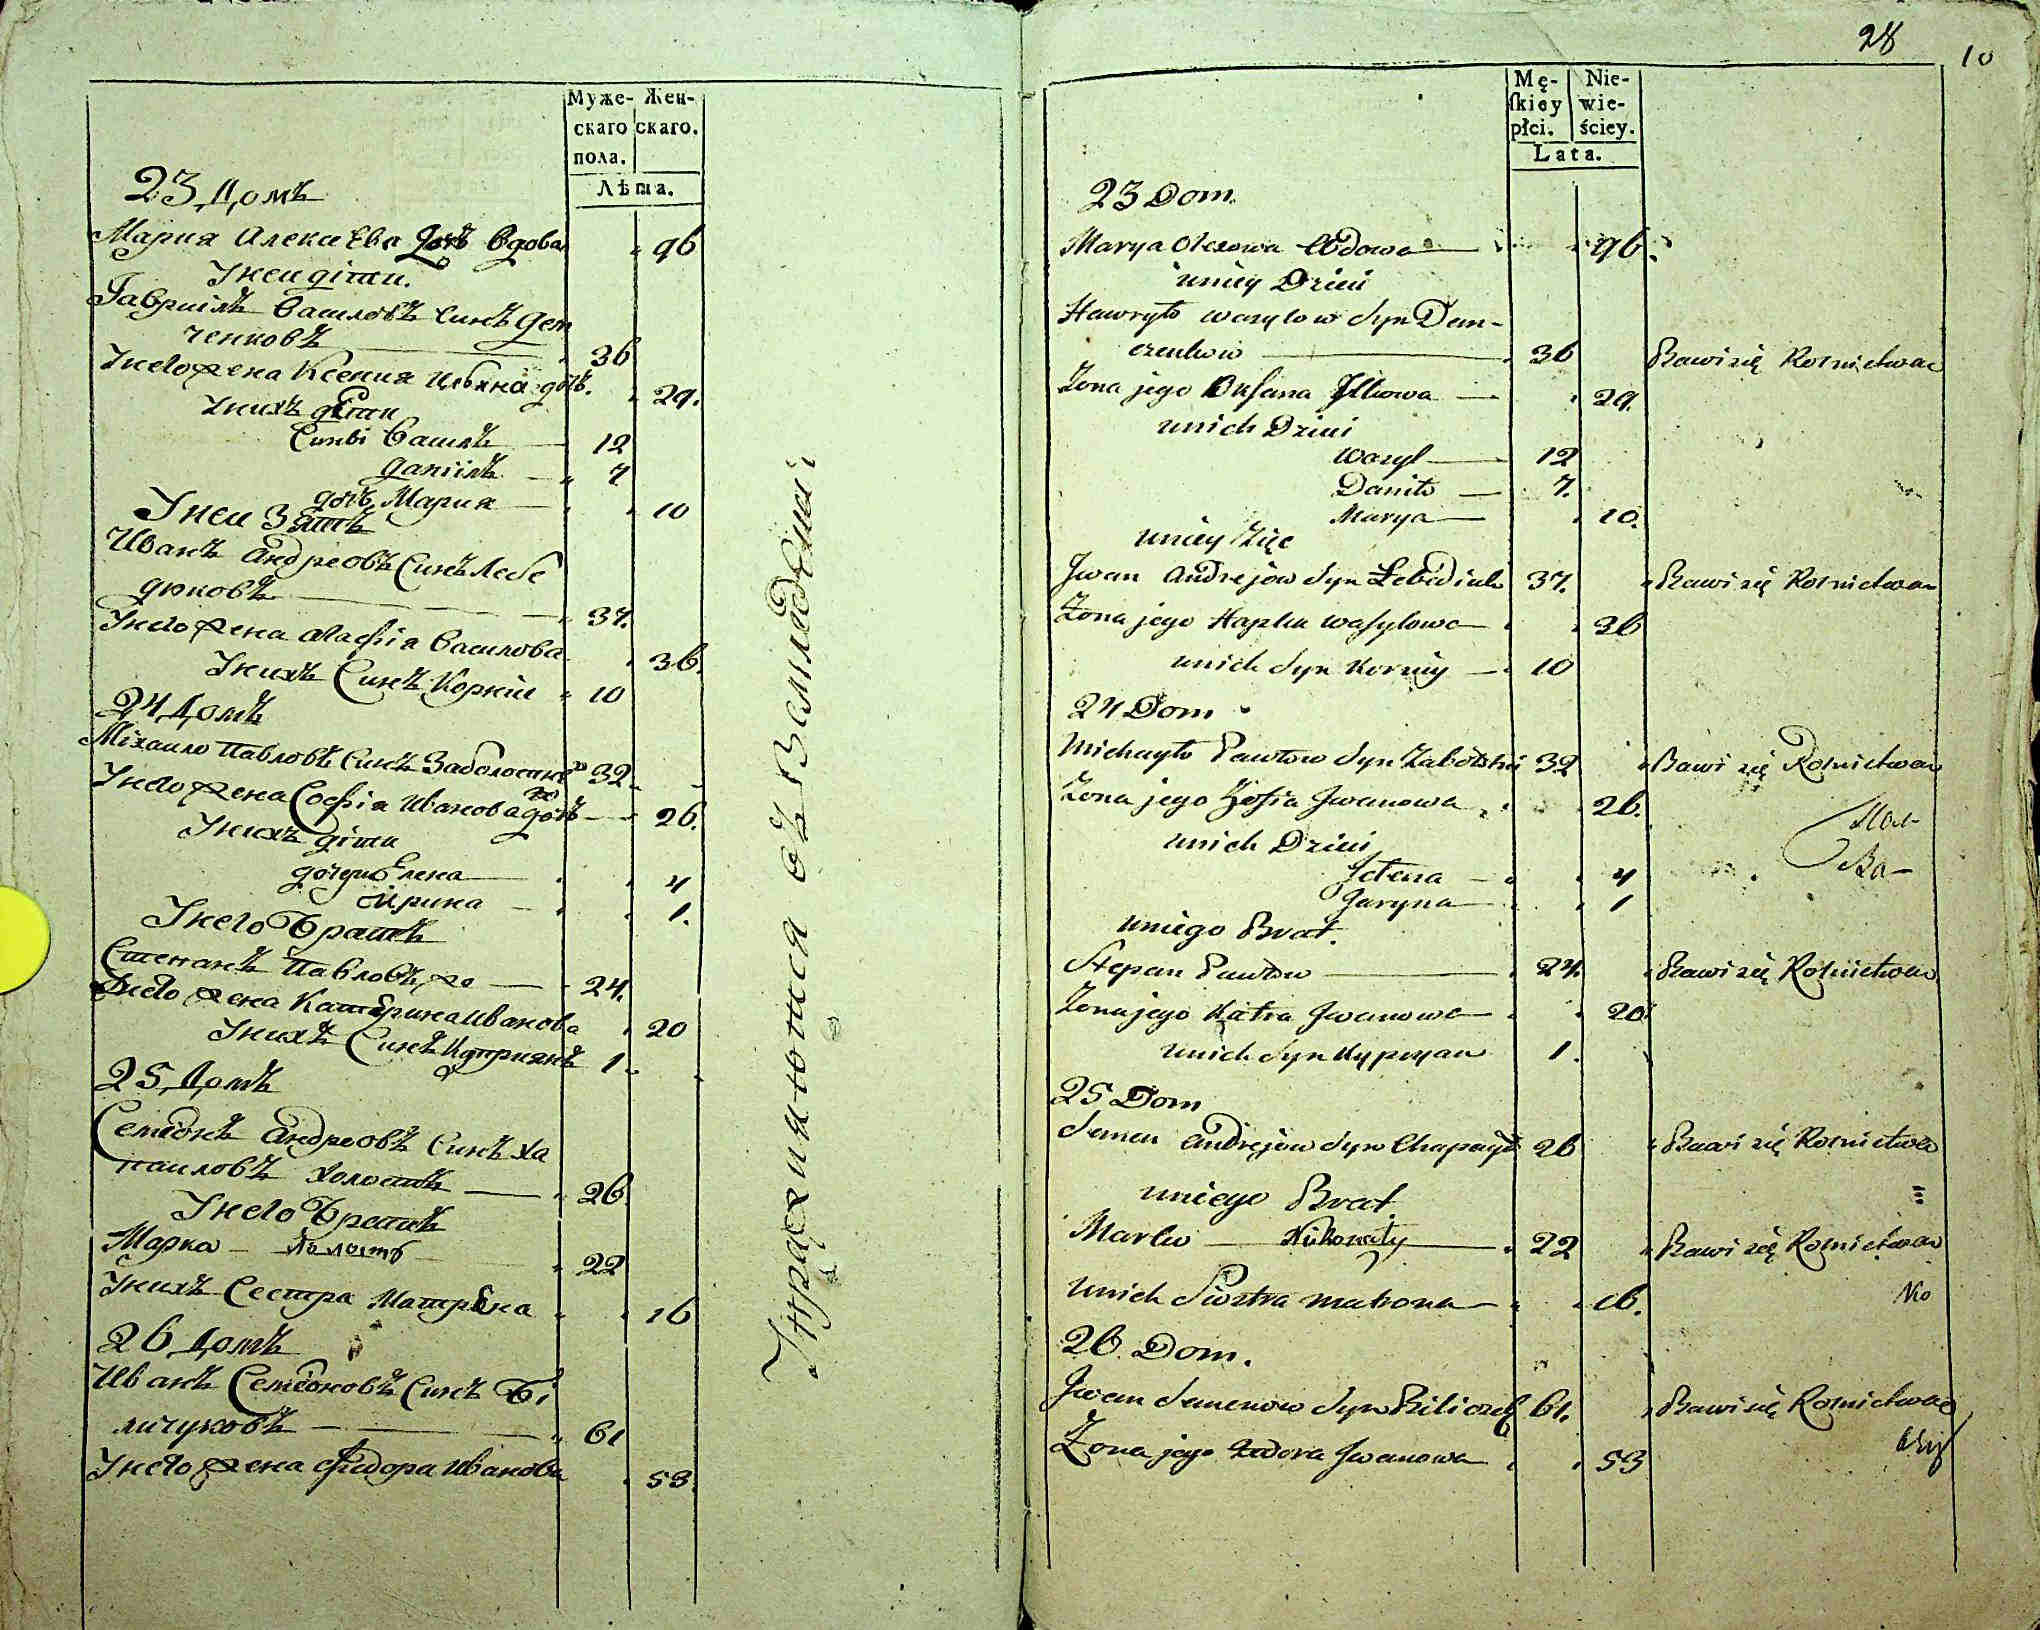 Муже- Жен-
скаго скаго.
пола.
Лѣта.
23 Домъ
Мария Алексѣева Дочь Вдова 96
У неи діти.
Гавриілъ Василовъ Синъ Дем
ченковъ 36
У него жена Ксения Илвяна дочь. 29.
У нихъ дѣти
Сини Василь 12
Даніилъ 7
дочь Мария 10
У неи Зять
Иванъ Андреовъ Синъ Лебе
дюковъ 37.
У него жена Агафія Василова 36.
У нихъ Синъ Корнiи 10
24 Домъ
Міхаило Павловъ Синъ Заболостно 32
У него жена Софія Иванова дочь 26.
У нихъ діти
дочери Елена 4
Ирина 1.
У него Братъ
Степанъ Павловъ же 24.
У него жена Катерина Иванова 20
У нихъ Синъ Куприянъ 1
25 Домъ
Семіонъ Андреовъ Синъ Ха
паиловъ холостъ 26
У него Братъ
Марко холостъ 22
У нихъ Сестра Матрѣна 16
26 Домъ
Иванъ Семіоновъ Синъ Бі
личуковъ 61
У него жена Фидора Иванова 53.
Упражняются въ Земледѣліи
28
10
Mę- Nie-
skiey wie-
płci. ściey.
Lata.
23 Dom.
Marya Olexowa Wdowa 96.
u niey Dzieci
Hawryło Wasylow Syn Dem-
czenkow 36 Bawi się Rolnictwem
Zona jego Oxsana Jlkowa 29.
u nich Dzieci
Wasyl 12
Daniło 7.
Marya 10.
u niey Zięc
Jwan Andrejow Syn Lebediuk 37. Bawi się Rolnictwem
Zona jego Hapka Wasylowa 36
u nich Syn Korniy 10
24 Dom
Michayło Pawłow Syn Zabołotni 32 Bawi się Rolnictwem
Zona jego Zofia Jwanowa 26.
u nich Dzieci
Jelena 4
Jaryna 1
u niego Brat.
Stepan Pawłow 24. Bawi się Rolnictwem
Zona jego Katra Jwanowa 20
u nich Syn Kypryan 1.
25 Dom
Semen Andrejow Syn Chapayło 26 Bawi się Rolnictwem
u niego Brat
Marko Nikonaty 22 Bawi się Rolnictwem
u nich Siostra Matrona 16.
26 Dom.
Jwan Semenow Syn Biliczuk 61. Bawi się Rolnictwem
Zona jego Fedora Jwanowa 53